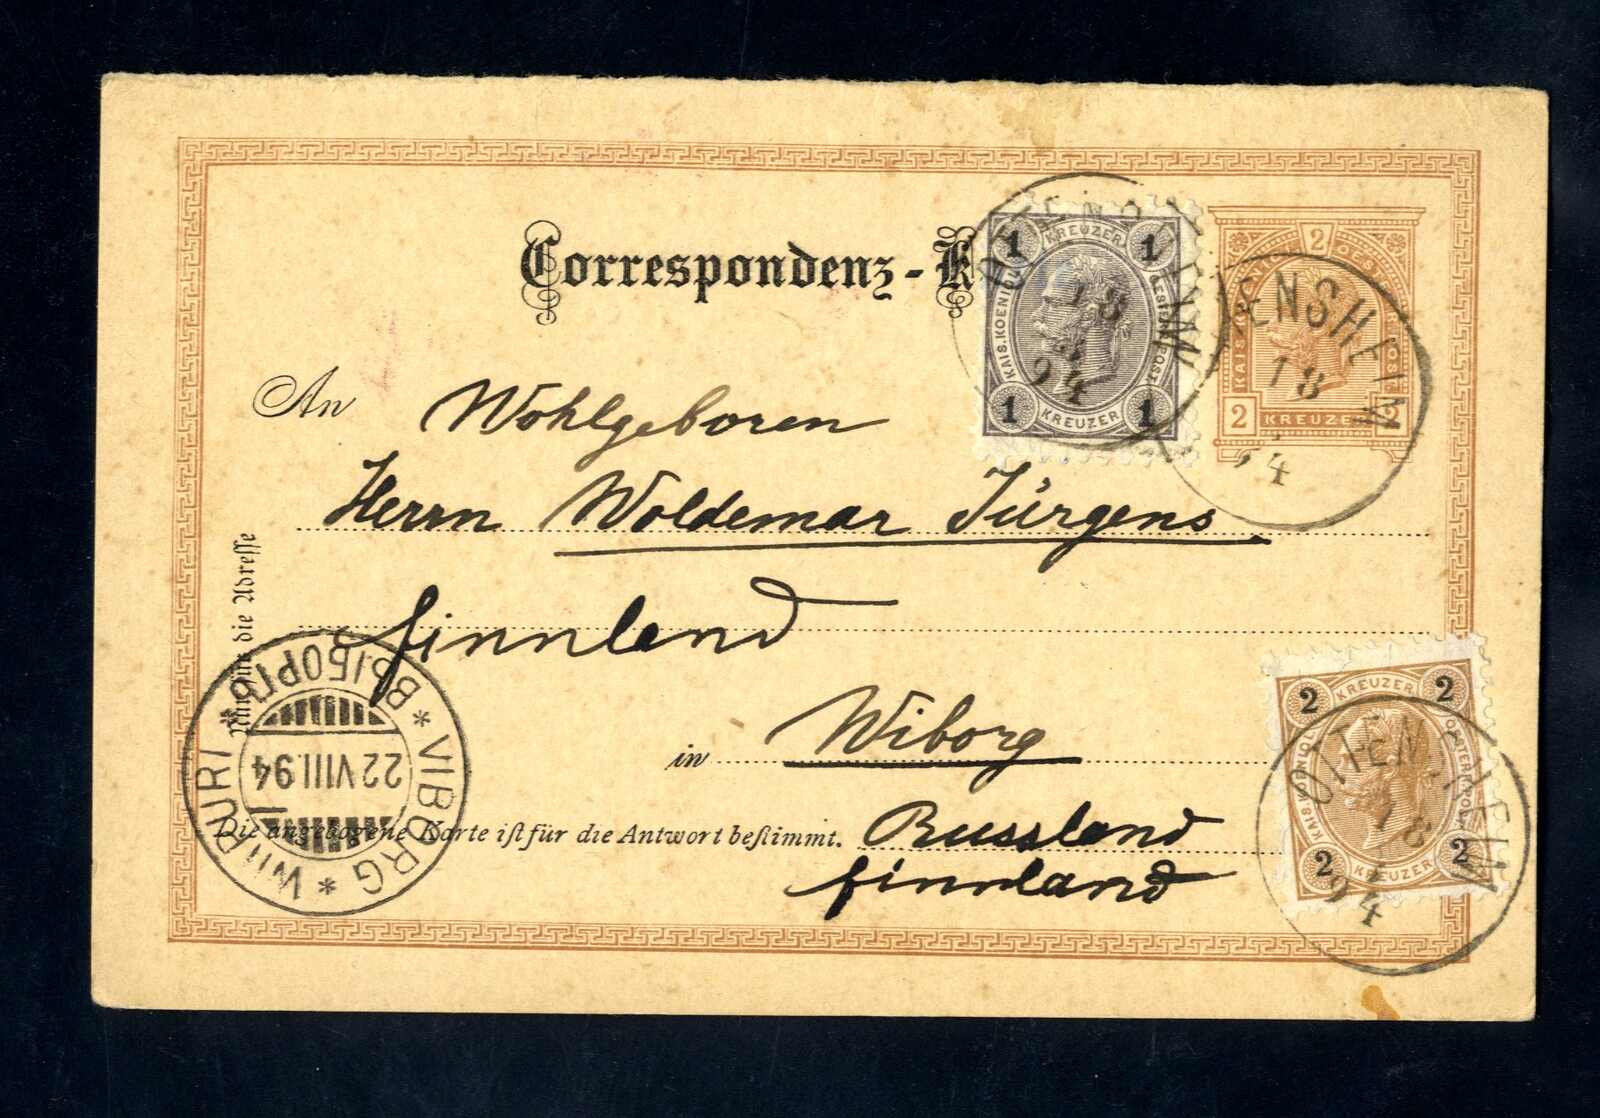 Correspondenz-K
An Wohlgeboren
Herrn Woldemar Jürgens
Finnland
in Wiborg
Russland
Finnland
Nur für die Adresse
Die angebogene Karte ist für die Antwort bestimmt.
1 KREUZER 1
KAIS. KOENIGL. OESTERR. POST
1 KREUZER 1
2
2 KREUZER 2
2 KREUZER 2
KAIS. KOENIGL. OESTERR. POST
2 KREUZER 2
OTTENSHEIM
18
94
ENSHEIM
18
94
OTTENSHEIM
18
94
WIIPURI * ВЫБОРГЪ * VIBORG *
22 VIII.94